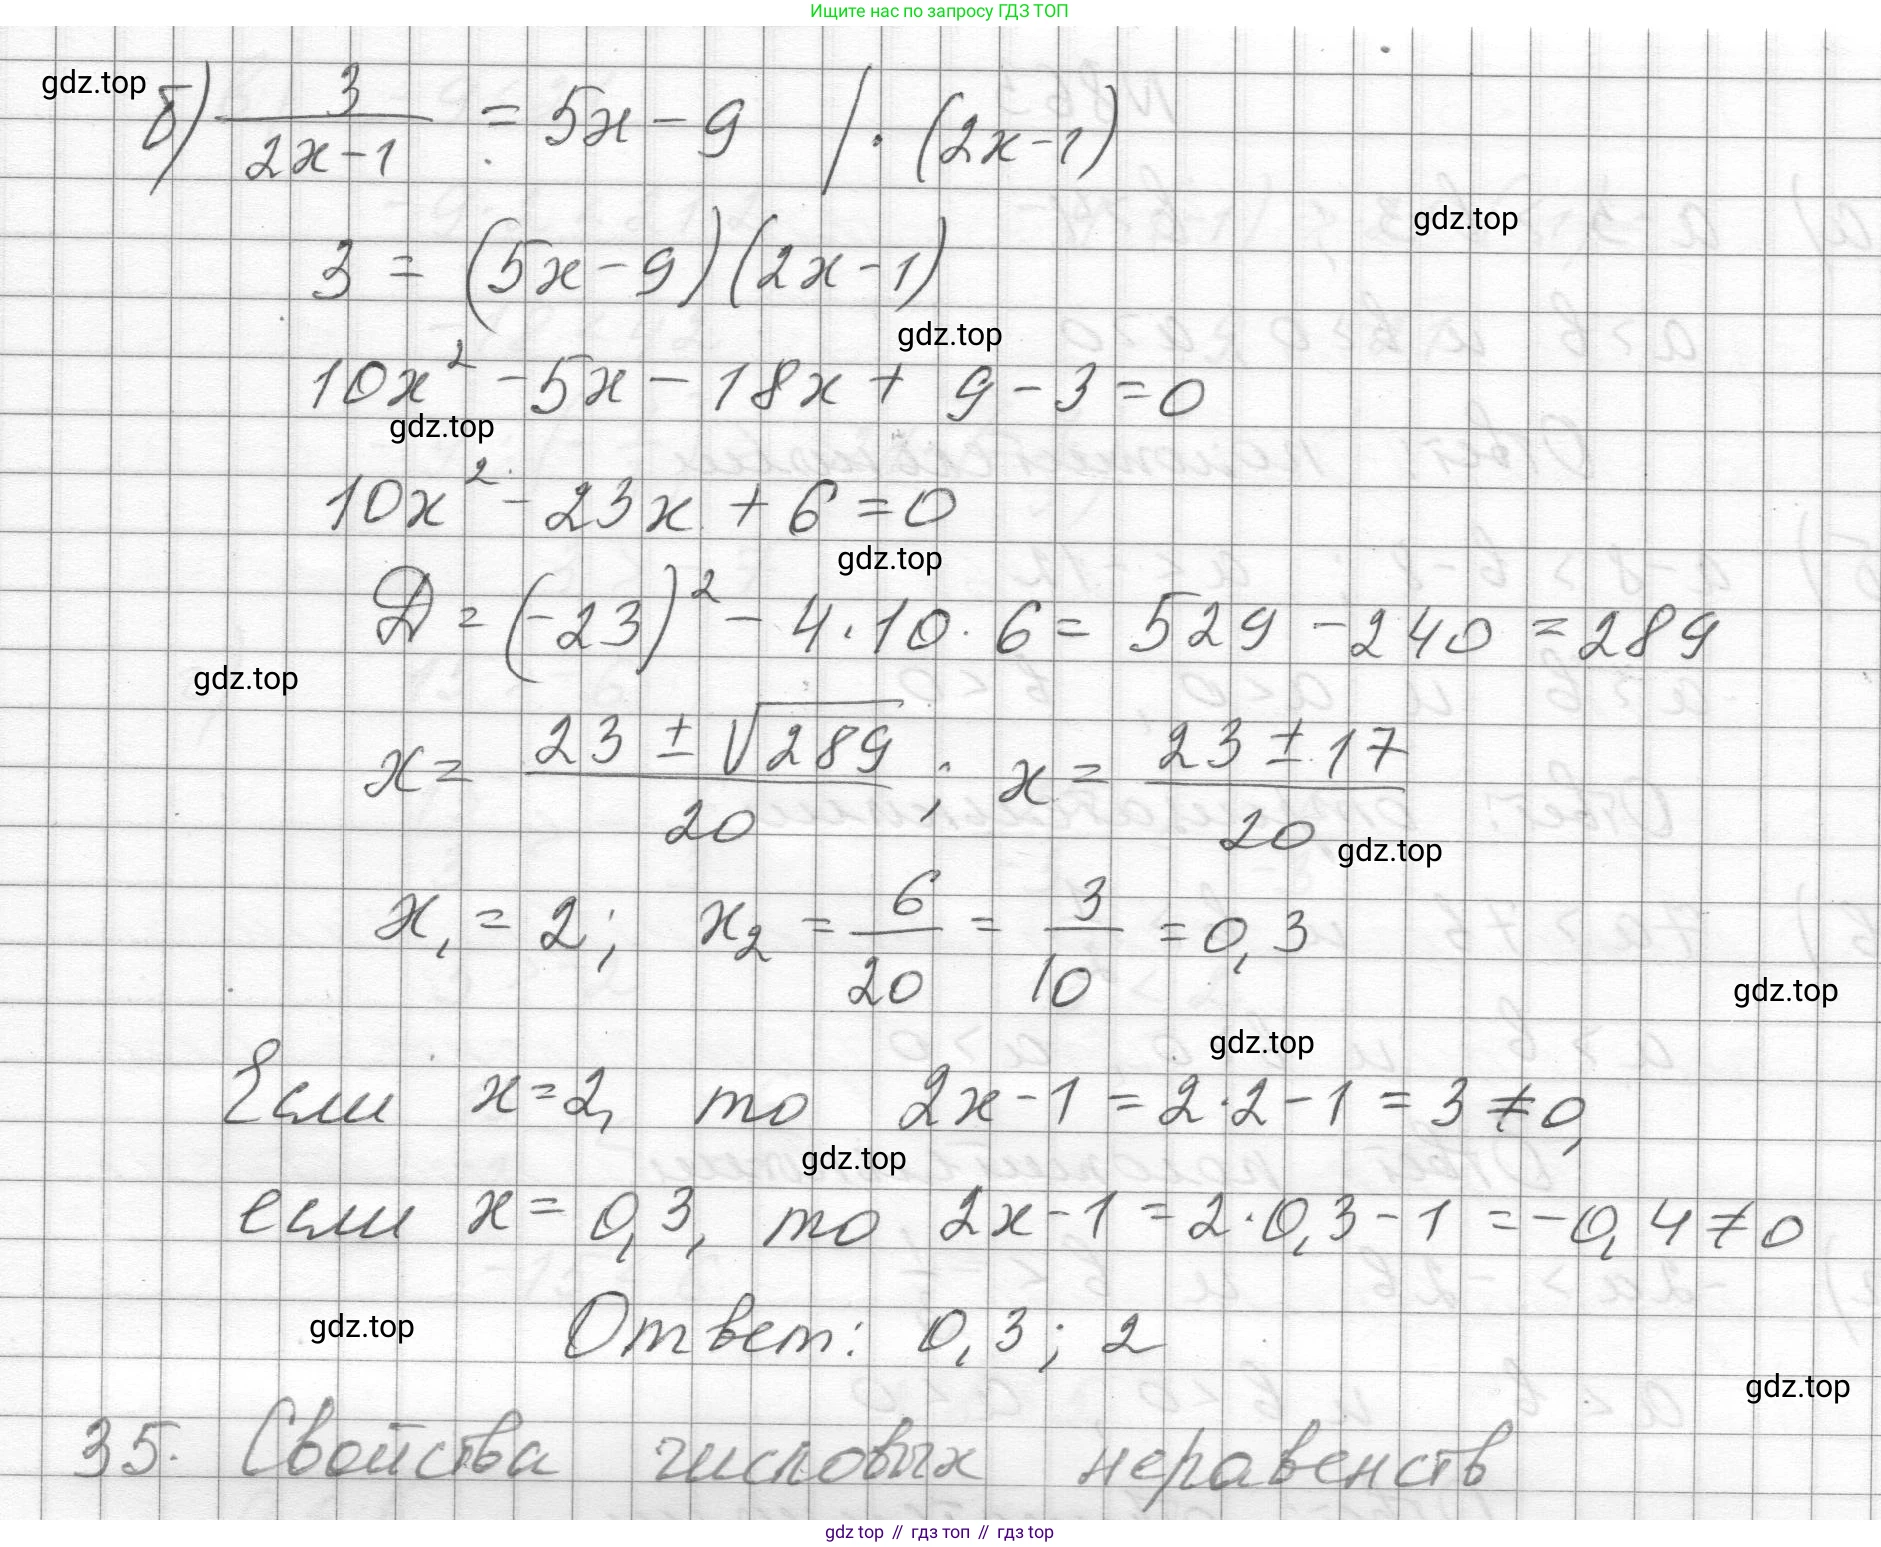 Ищите нас по запросу ГДЗ ТОП
gdz.top
б) 3/(2x-1) = 5x - 9 | · (2x-1)
gdz.top
3 = (5x-9)(2x-1)
gdz.top
10x² - 5x - 18x + 9 - 3 = 0
gdz.top
10x² - 23x + 6 = 0
gdz.top
D = (-23)² - 4·10·6 = 529 - 240 = 289
gdz.top
x = (23 ± √289)/20 ; x = (23 ± 17)/20
gdz.top
x₁ = 2; x₂ = 6/20 = 3/10 = 0,3
gdz.top
gdz.top
Если x=2, то 2x-1 = 2·2-1 = 3 ≠ 0,
gdz.top
если x = 0,3, то 2x-1 = 2·0,3-1 = -0,4 ≠ 0
gdz.top
Ответ: 0,3; 2
gdz.top
35. Свойства числовых неравенств
gdz top // гдз топ // gdz top